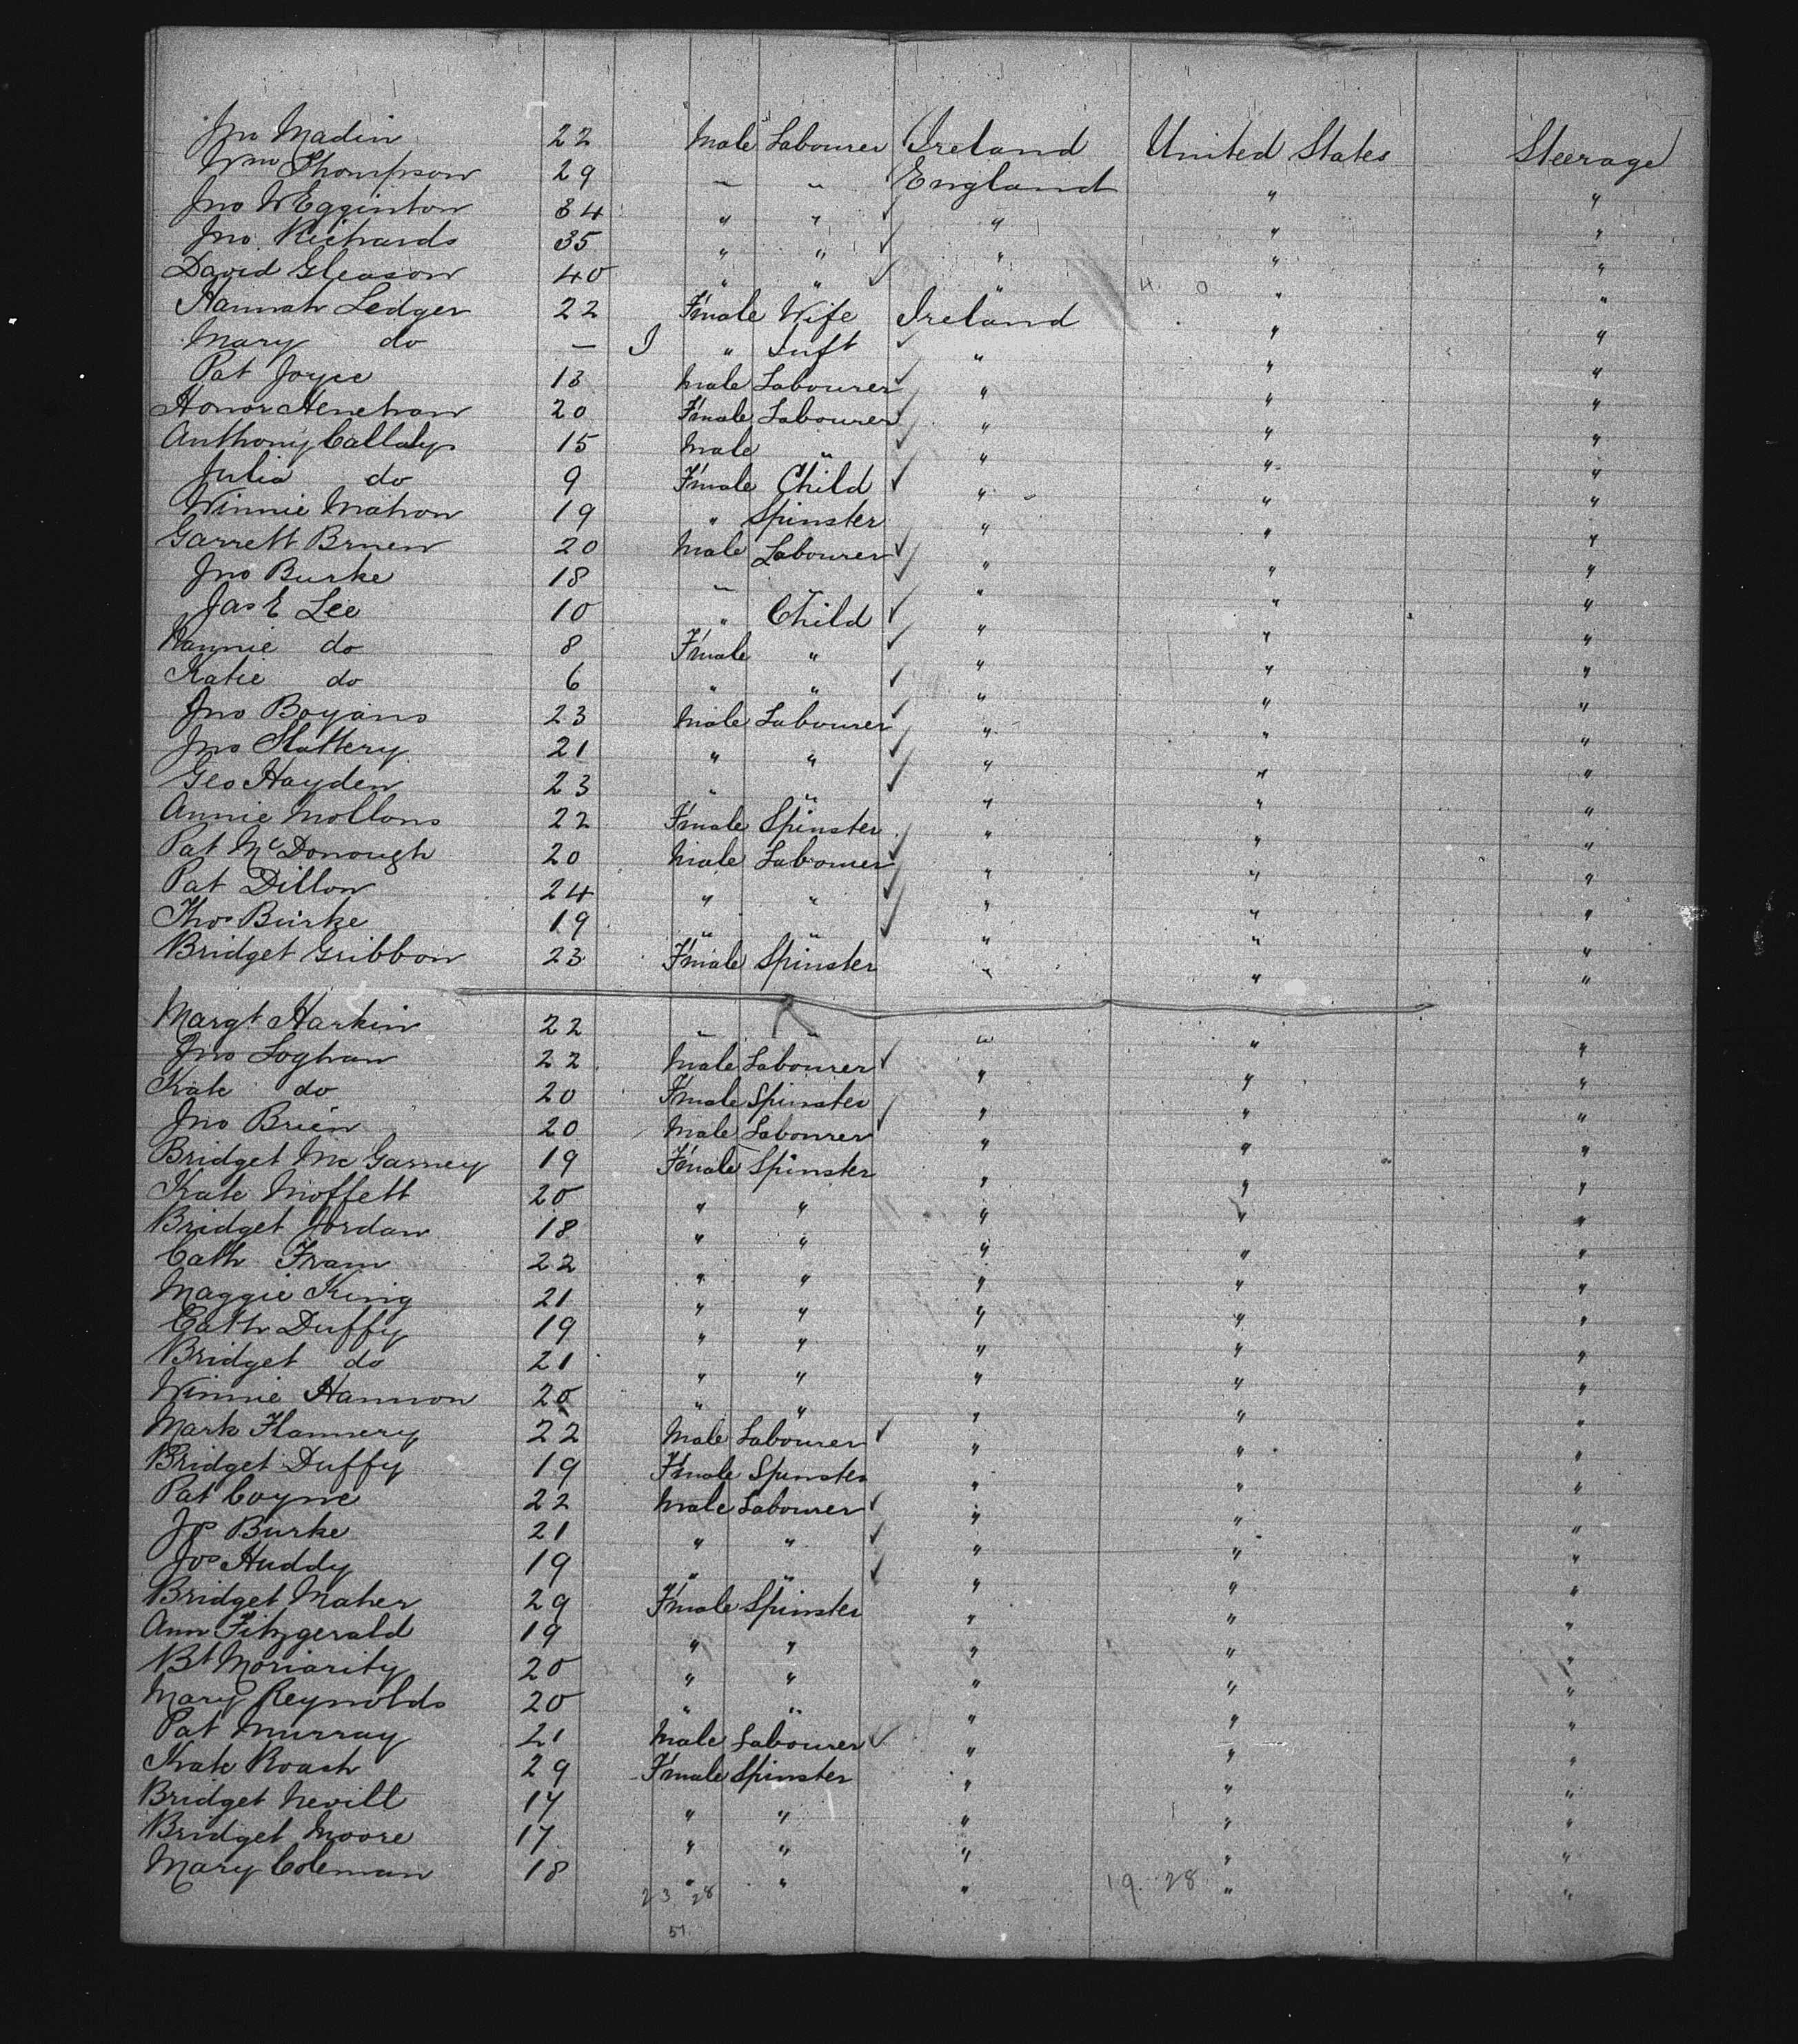 Jno Madin 22 Male Labourer Ireland United States Steerage
Wm Thompson 29 " " England " "
Jno W Egginton 34 " " " " "
Jno Richards 35 " " " " "
David Gleason 40 " " " " "
Hannah Ledger 22 Fmale Wife Ireland " "
Mary do — I " Inft " " "
Pat Joyce 13 Male Labourer " " "
Honor Henehan 20 Fmale Labourer " " "
Anthony Callaly 15 Male " " " "
Julia do 9 Fmale Child " " "
Winnie Mahon 19 " Spinster " " "
Garrett Bruen 20 Male Labourer " " "
Jno Burke 18 " " " " "
Jas E Lee 10 " Child " " "
Nannie do 8 Fmale " " " "
Katie do 6 " " " " "
Jno Boyans 23 Male Labourer " " "
Jno Slattery 21 " " " " "
Geo Hayden 23 " " " " "
Annie Mollons 22 Fmale Spinster " " "
Pat McDonough 20 Male Labourer " " "
Pat Dillon 24 " " " " "
Thos Burke 19 " " " " "
Bridget Gribbon 23 Fmale Spinster " " "
Margt Harkin 22 " " " " "
Jno Loghan 22 Male Labourer " " "
Kate do 20 Fmale Spinster " " "
Jno Brien 20 Male Labourer " " "
Bridget McGarney 19 Fmale Spinster " " "
Kate Moffett 20 " " " " "
Bridget Jordan 18 " " " " "
Cath Frain 22 " " " " "
Maggie King 21 " " " " "
Cath Duffy 19 " " " " "
Bridget do 21 " " " " "
Winnie Hannon 20 " " " " "
Mark Flannery 22 Male Labourer " " "
Bridget Duffy 19 Fmale Spinster " " "
Pat Coyne 22 Male Labourer " " "
Jos Burke 21 " " " " "
Jos Huddy 19 " " " " "
Bridget Maher 29 Fmale Spinster " " "
Ann Fitzgerald 19 " " " " "
Bt Moriarity 20 " " " " "
Mary Reynolds 20 " " " " "
Pat Murray 21 Male Labourer " " "
Kate Roach 29 Fmale Spinster " " "
Bridget Nevill 17 " " " " "
Bridget Moore 17 " " " " "
Mary Coleman 18 " " " " "
23 28 19 28
51